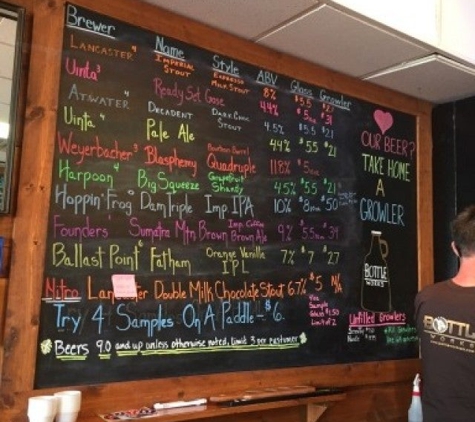 Brewer Name Style ABV Glass Growler
Lancaster 4 Imperial Stout Espresso Milk Stout 8% $5.5 $21
Uinta 3 Ready Set Gose 4.4% $5 $31
Atwater 4 Decadent Dark Choc Stout 4.5% $5.5 $21
Uinta 4 Pale Ale 4.4% $5.5 $21
Weyerbacher 3 Blasphemy Bourbon Barrel Quadruple 11.8% $5
Harpoon 4 Big Squeeze Grapefruit Shandy 4.5% $5.5 $21
Hoppin' Frog 6 Dam Triple Imp. IPA 10% $8 $50
Founders Sumatra Mtn Brown Imp. Coffee Brown Ale 9% $39
Ballast Point 6 Fathom Orange Vanilla IPL 7% $7 $27
Nitro Double Milk Chocolate Stout 6.7% $5 N/A
Try 4 Samples On A Paddle - $6.
4oz Sample Glass $1.50 Limit of 2
Beers 9.0 and up unless otherwise noted, limit 3 per customer
OUR BEER?
TAKE HOME
A
GROWLER
BOTTLE
WORKS
Unfilled Growlers
BOTTLE
WORKS